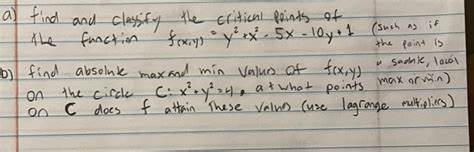 a) find and classify the critical points of
the function f(x,y) = y² + x² - 5x - 10y + 1 (such as if
the point is
a saddle, local
max or min)
b) find absolute max and min values of f(x,y)
on the circle C: x² + y² = 4, at what points
on C does f attain these values (use lagrange multipliers)